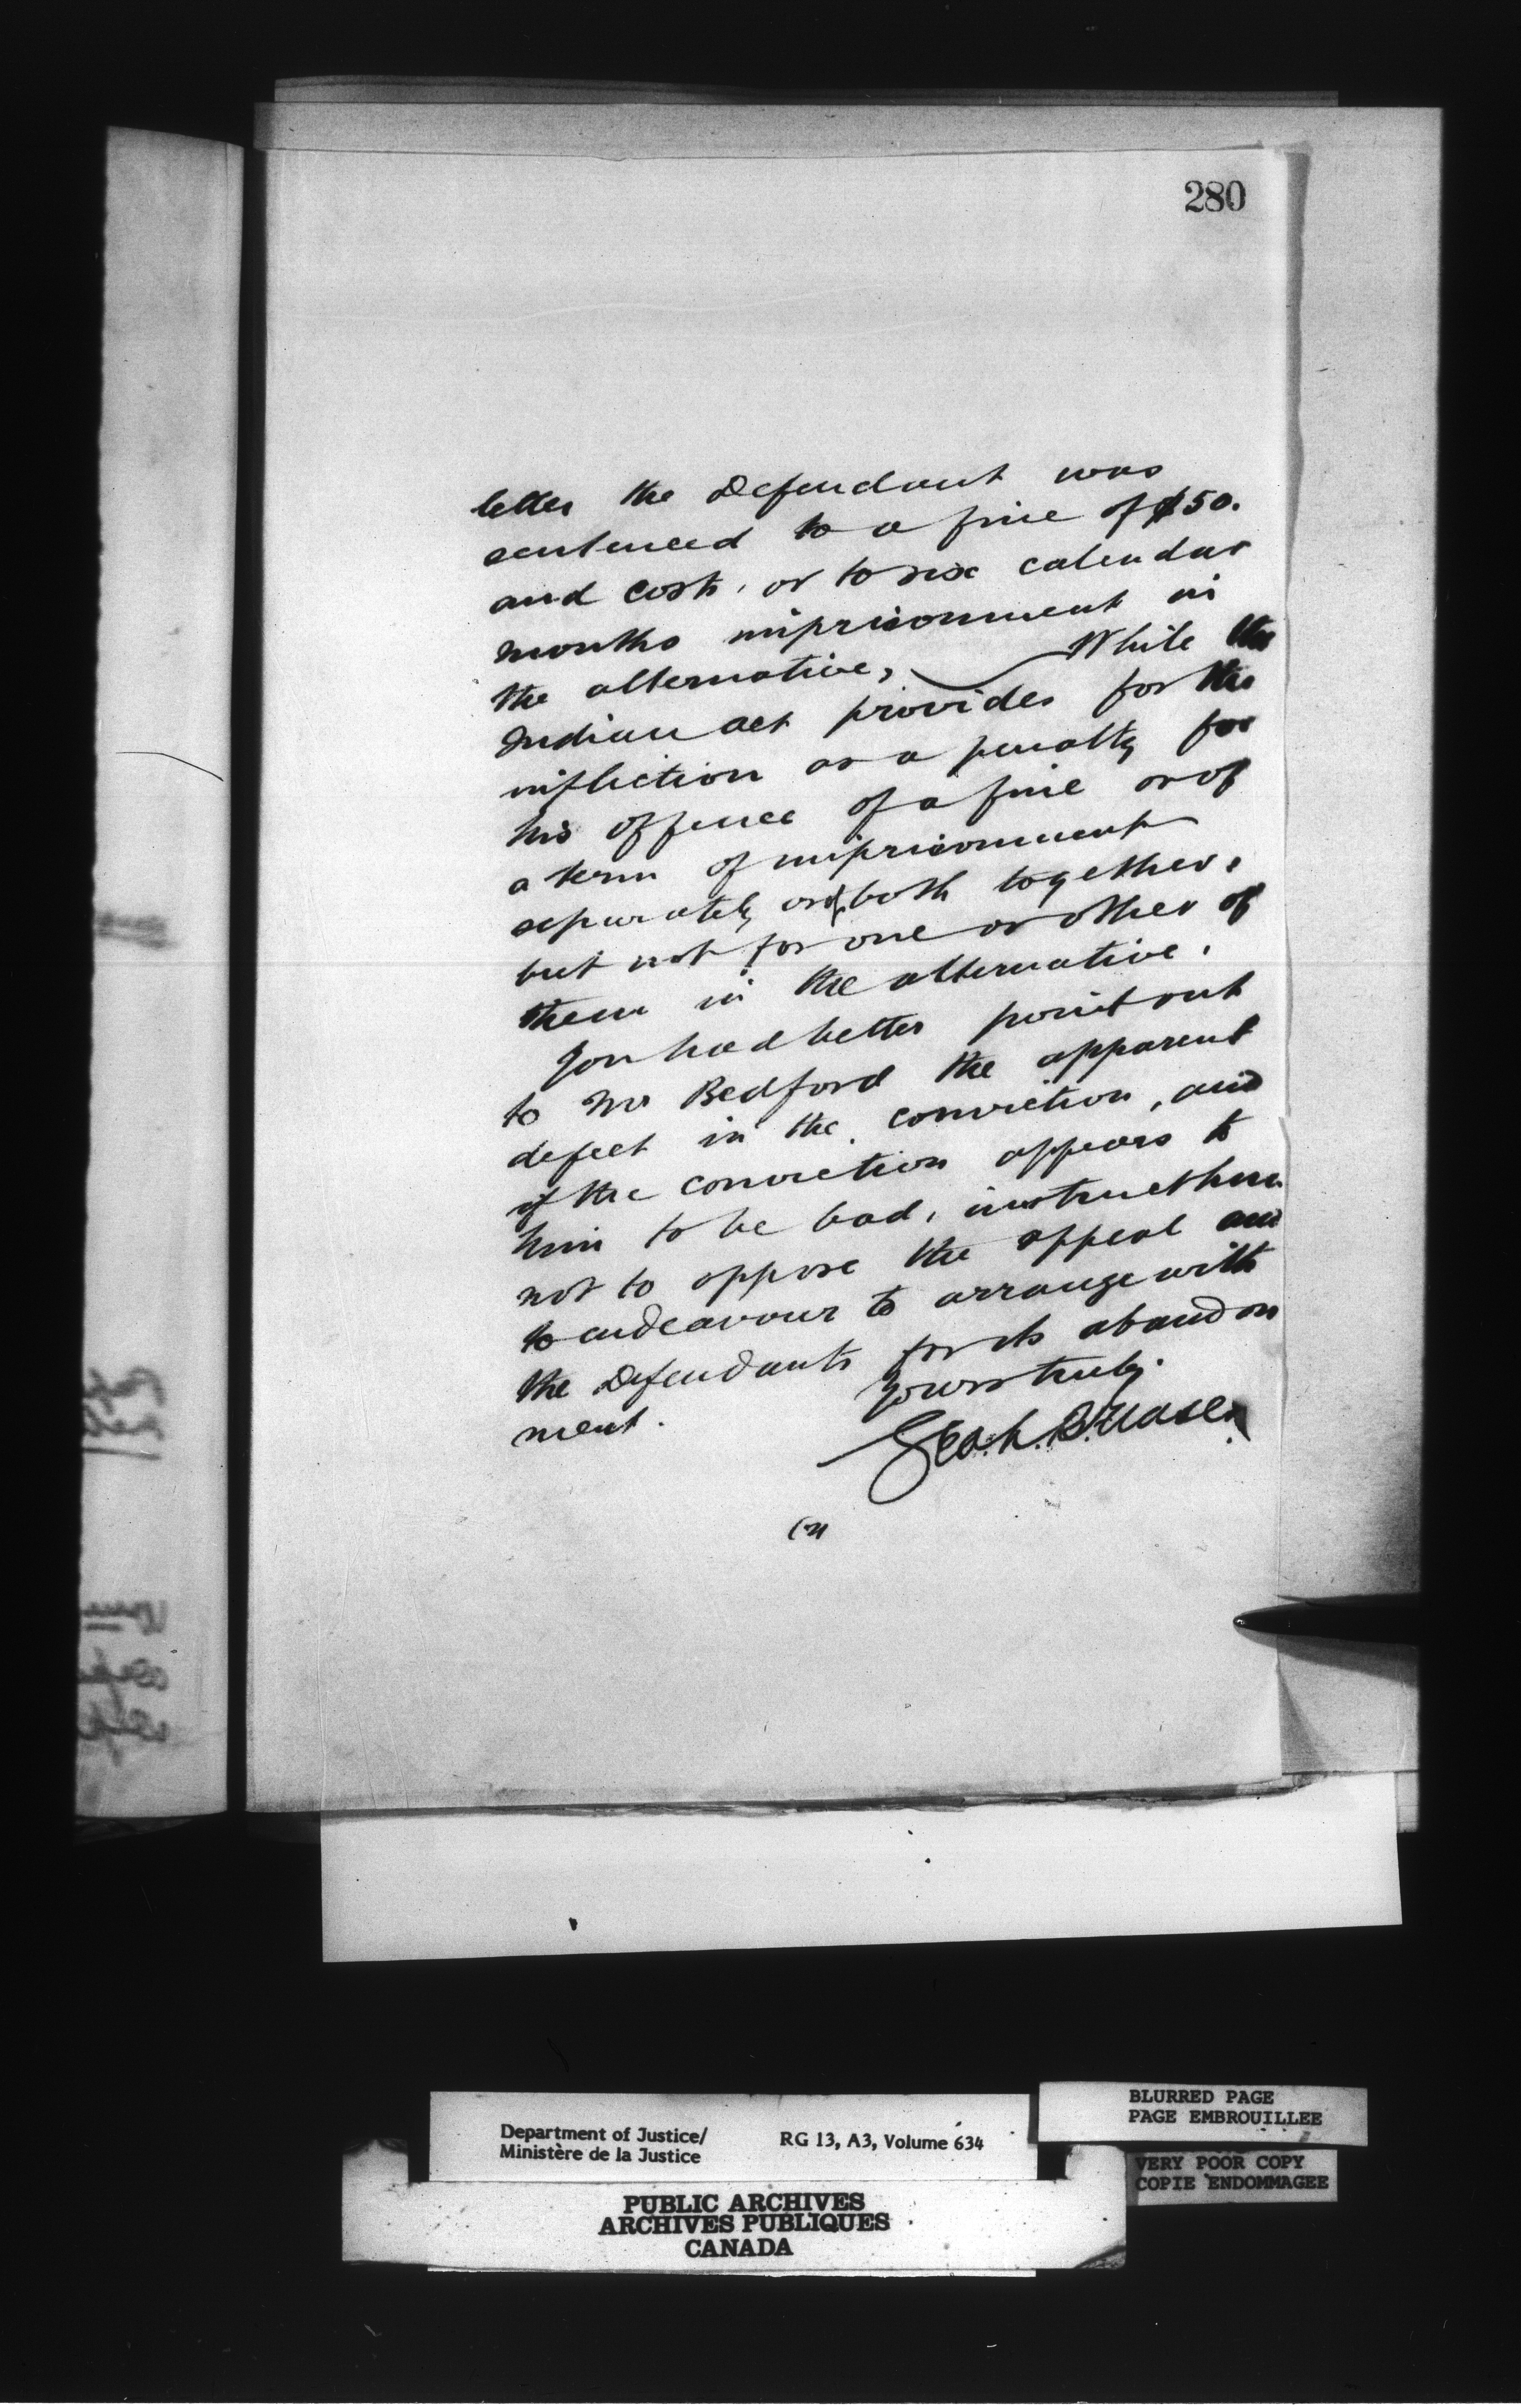 280
letter the Defendant was
sentenced to a fine of $50.
and costs, or to six calendar
months imprisonment in
the alternative, While the
Indian act provides for the
infliction as a penalty for
his offence of a fine or of
a term of imprisonment
separately or of both together,
but not for one or other of
them in the alternative.
You had better point out
to Mr Bedford the apparent
defect in the conviction, and
if the conviction appears to
him to be bad, instruct him
not to oppose the appeal and
to endeavour to arrange with
the Defendants for its abandon
ment.
Yours truly.
Geo. L. B. Fraser
Department of Justice/
Ministère de la Justice
RG 13, A3, Volume 634
BLURRED PAGE
PAGE EMBROUILLEE
VERY POOR COPY
COPIE ENDOMMAGEE
PUBLIC ARCHIVES
ARCHIVES PUBLIQUES
CANADA